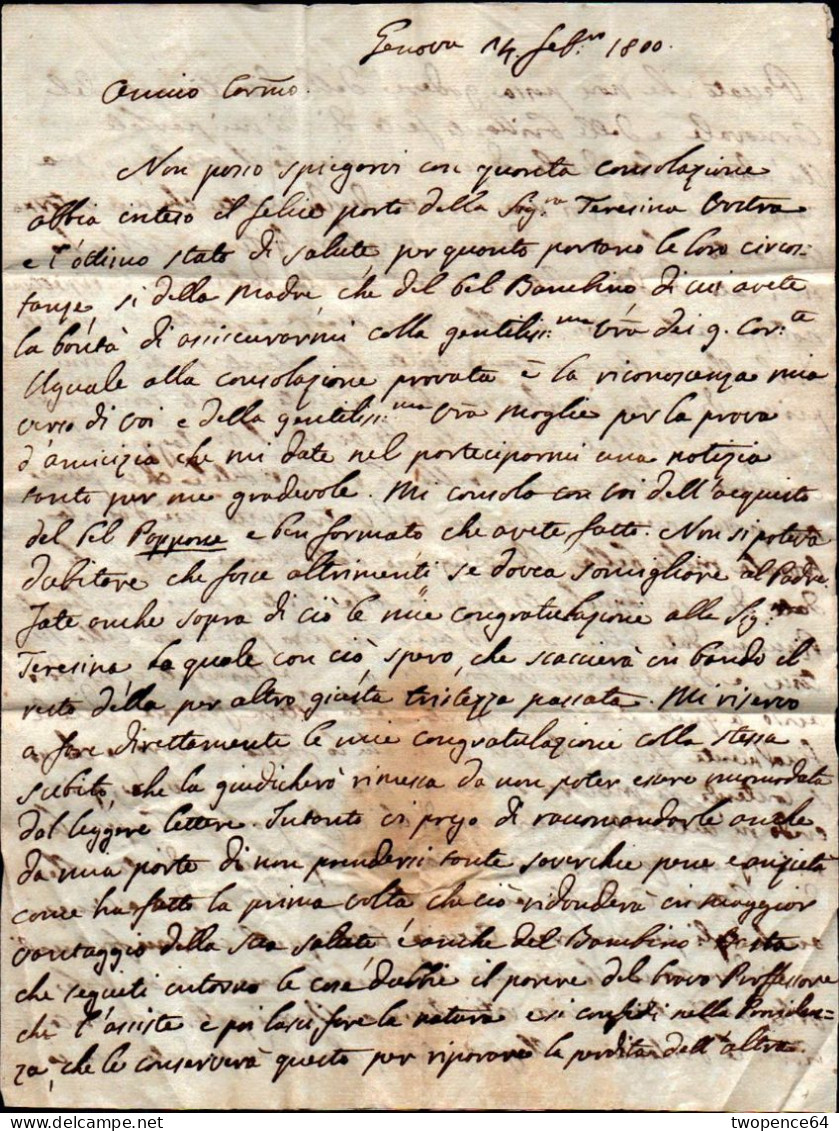 Genova 14. feb.ro 1800.
Amico Carmo.
Non posso spiegarvi con quanta consolazione
abbia inteso il felice parto della Sig.ra Teresina Vostra
e l'ottimo stato di salute, per quanto portano le loro circos-
tanze, sì della Madre, che del bel Bambino di cui avete
la bontà di assicurarmi colla gentiliss:ma Vra dei 9. Cor.te
Uguale alla consolazione provata è la riconoscenza mia
verso di voi e della gentiliss:ma Vra Moglie per la prova
d'amicizia che mi date nel parteciparmi una notizia
tanto per me gradevole. Mi consolo con voi dell'acquisto
del bel Poppone e ben formato che avete fatto. Non si poteva
dubitare che fosse altrimenti se dovea somigliare al Padre.
Fate anche sopra di ciò le mie congratulazione alla Sig.ra
Teresina la quale con ciò, spero, che scaccierà in bando il
resto della per altro giusta tristezza passata. Mi riservo
a fare direttamente le mie congratulazione colla stessa
subito che la giudicherò rimessa da non poter essere incomodata
dal leggere lettere. Intanto vi prego di raccomandarle anche
da mia parte di non prendersi tante soverchie pene e anzietà
come ha fatto la prima volta che ciò ridonderà in maggior
vantaggio della sua salute è anche del Bambino. Basta
che seguiti intorno le cose dubbie il parere del bravo Proffessore
che l'assiste e poi lasci fare la natura e si confidi nella Providen-
za, che le conserverà questo per riparare la perdita dell'altra.
twopence64